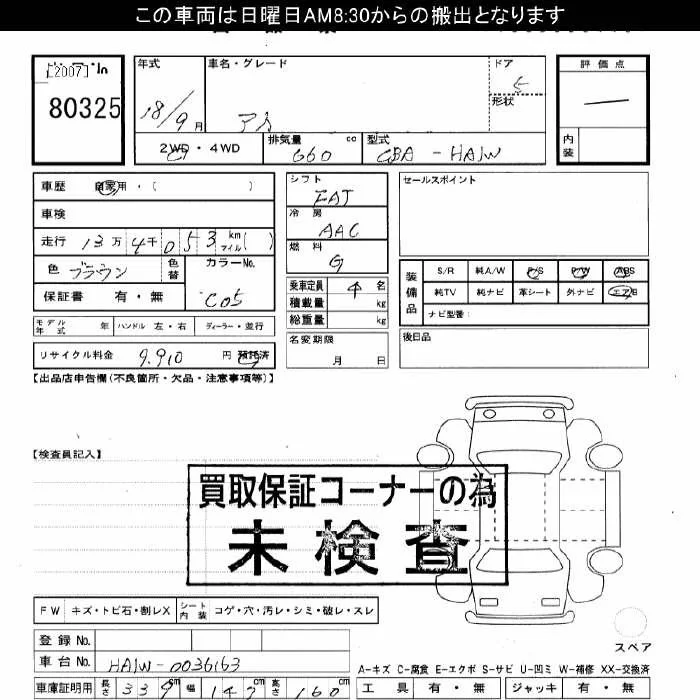 この車両は日曜日AM8:30からの搬出となります
[2007]
80325
年式 車名・グレード ドア 5
18/9月 アイ 形状
2WD・4WD 排気量 660 cc 型式 CBA-HA1W
評価点
内装
車歴 自家用・( )
車検
走行 13万4千053 km マイル( )
色 ブラウン 色替 カラーNo. C05
保証書 有・無
モデル年式 年 ハンドル 左・右 ディーラー・並行
リサイクル料金 9.910 円 預託済
シフト FAT
冷房 AAC
燃料 G
乗車定員 4 名
積載量 kg
総重量 kg
名変期限
月 日
セールスポイント
装備品
S/R 純A/W P/S P/W ABS
純TV 純ナビ 革シート 外ナビ エアB
ナビ型番:
後日品
【出品店申告欄(不良箇所・欠品・注意事項等)】
【検査員記入】
買取保証コーナーの為
未検査
FW キズ・トビ石・割レX シート内装 コゲ・穴・汚レ・シミ・破レ・スレ
登録No.
車台No. HA1W-0036163
車庫証明用 長さ 339cm 幅 147cm 高さ 160cm
スペア
A-キズ C-腐食 E-エクボ S-サビ U-凹ミ W-補修 XX-交換済
工具 有・無 ジャッキ 有・無